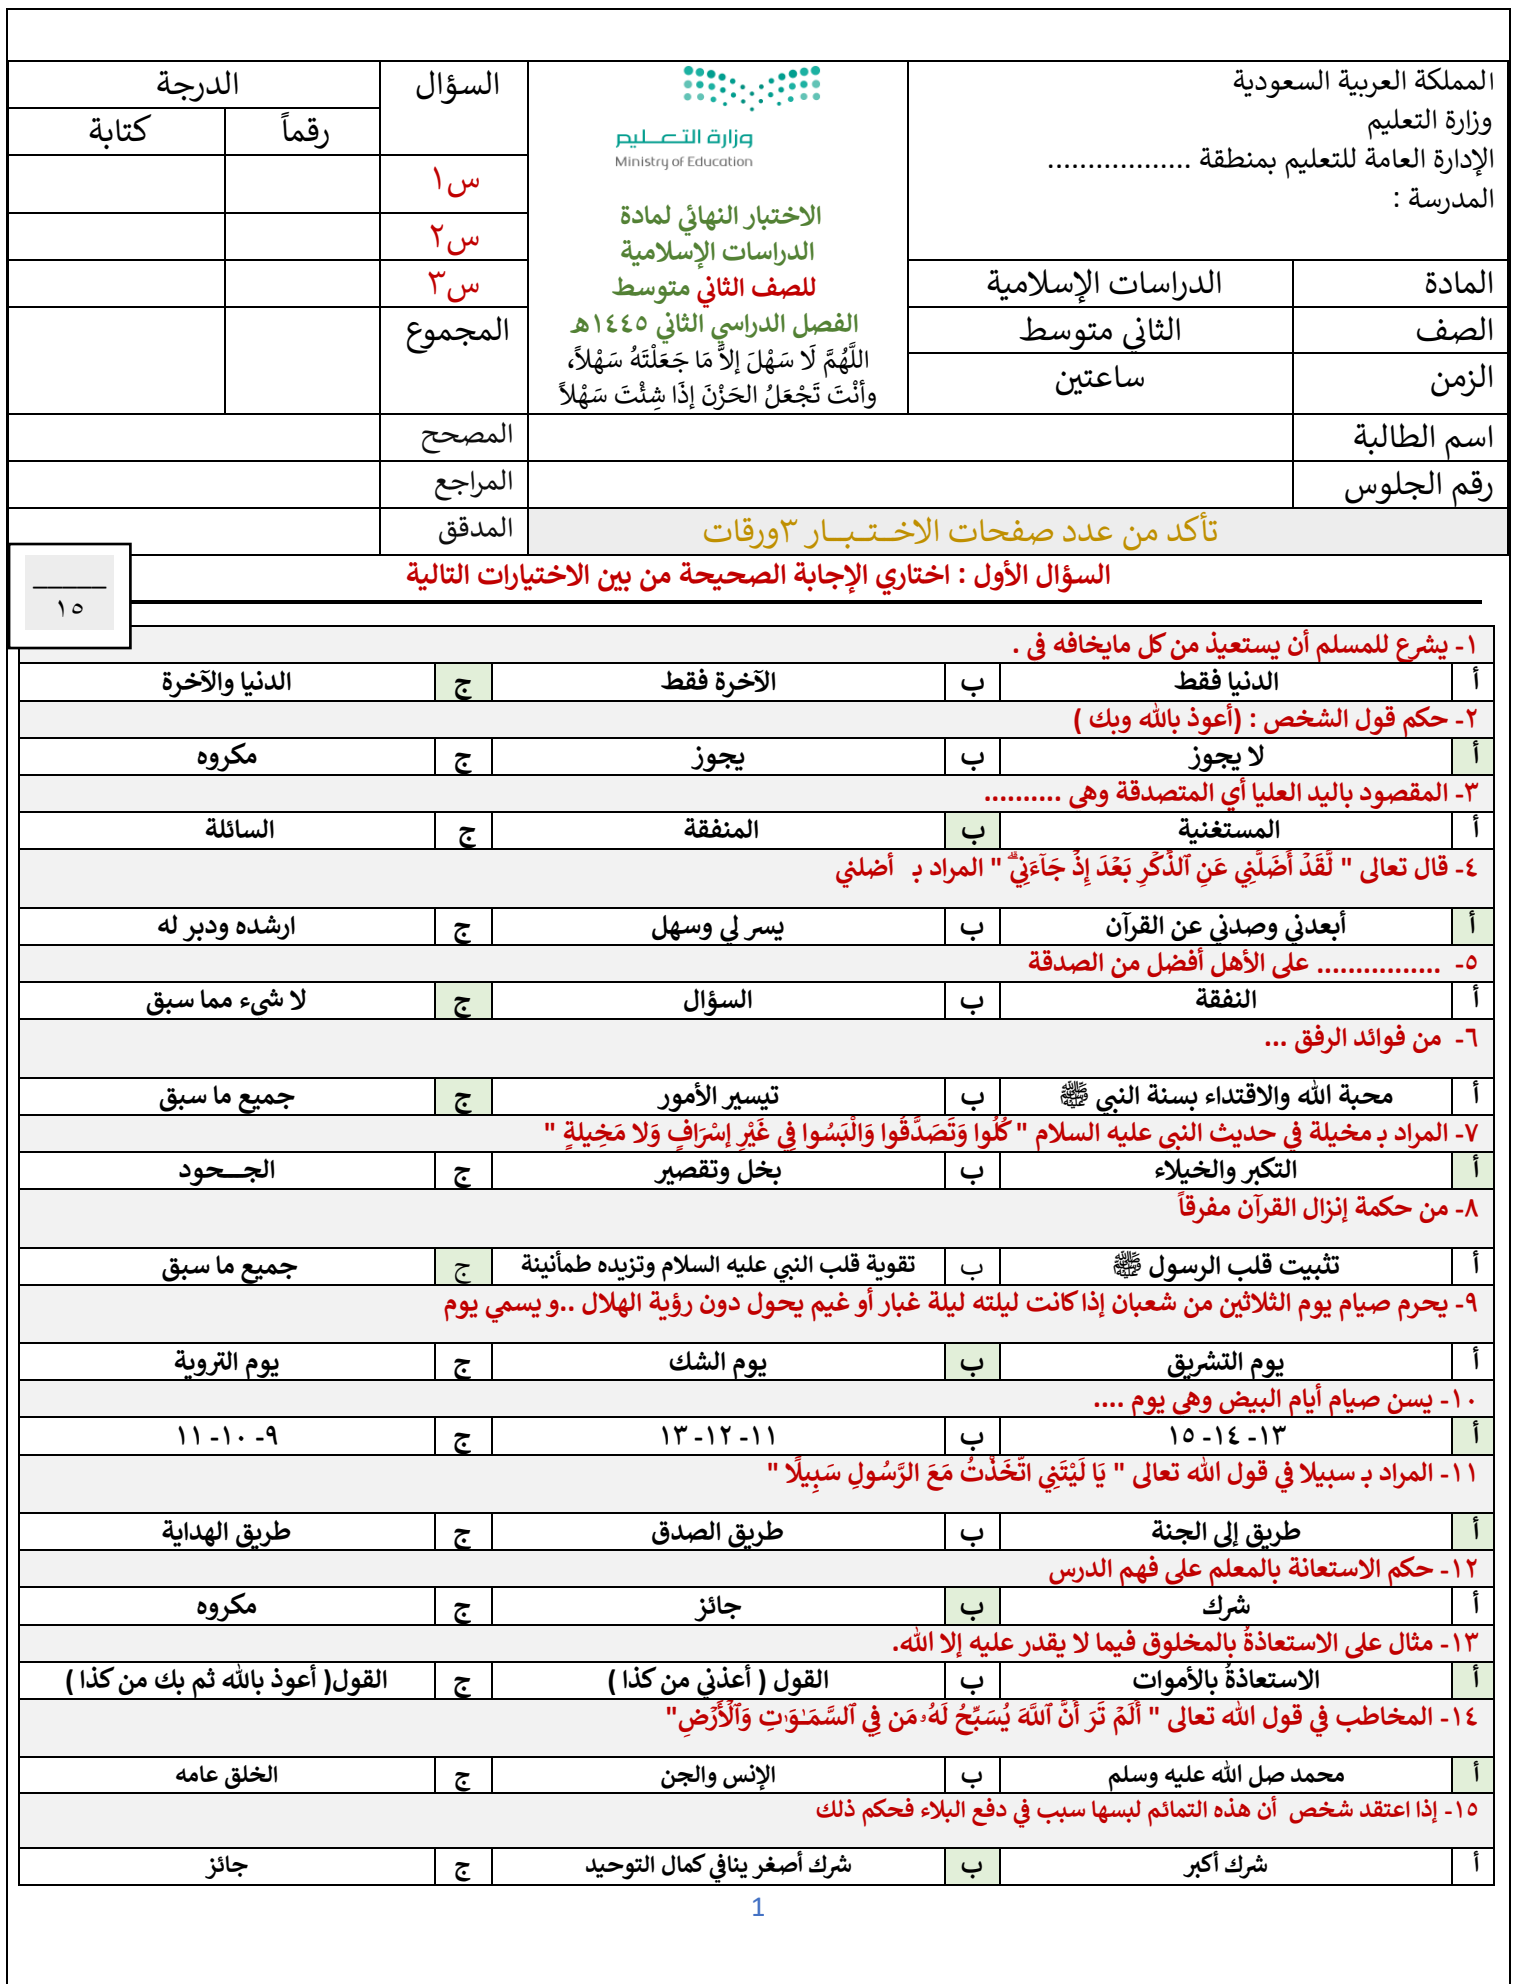 المملكة العربية السعودية
وزارة التعليم
الإدارة العامة للتعليم بمنطقة ..................
المدرسة :
وزارة التعـــليم
Ministry of Education
الاختبار النهائي لمادة
الدراسات الإسلامية
للصف الثاني متوسط
الفصل الدراسي الثاني ١٤٤٥هـ
اللَّهُمَّ لَا سَهْلَ إلاَّ مَا جَعَلْتَهُ سَهْلاً،
وأنْتَ تَجْعَلُ الحَزْنَ إذَا شِئْتَ سَهْلاً
السؤال الدرجة
رقماً كتابة
س١
س٢
س٣
المجموع
المادة الدراسات الإسلامية
الصف الثاني متوسط
الزمن ساعتين
اسم الطالبة المصحح
رقم الجلوس المراجع
تأكد من عدد صفحات الاخــتــبــار ٣ورقات المدقق
السؤال الأول : اختاري الإجابة الصحيحة من بين الاختيارات التالية
______
١٥
١- يشرع للمسلم أن يستعيذ من كل مايخافه في .
أ الدنيا فقط ب الآخرة فقط ج الدنيا والآخرة
٢- حكم قول الشخص : (أعوذ بالله وبك )
أ لا يجوز ب يجوز ج مكروه
٣- المقصود باليد العليا أي المتصدقة وهي ..........
أ المستغنية ب المنفقة ج السائلة
٤- قال تعالى " لَّقَدۡ أَضَلَّنِي عَنِ ٱلذِّكۡرِ بَعۡدَ إِذۡ جَآءَنِيۗ " المراد بـ أضلني
أ أبعدني وصدني عن القرآن ب يسر لي وسهل ج ارشده ودبر له
٥- ................ على الأهل أفضل من الصدقة
أ النفقة ب السؤال ج لا شيء مما سبق
٦- من فوائد الرفق ...
أ محبة الله والاقتداء بسنة النبي ﷺ ب تيسير الأمور ج جميع ما سبق
٧- المراد بـ مخيلة في حديث النبي عليه السلام " كُلُوا وَتَصَدَّقُوا وَالْبَسُوا فِي غَيْرِ إسْرَافٍ وَلا مَخِيلةٍ "
أ التكبر والخيلاء ب بخل وتقصير ج الجـــحود
٨- من حكمة إنزال القرآن مفرقاً
أ تثبيت قلب الرسول ﷺ ب تقوية قلب النبي عليه السلام وتزيده طمأنينة ج جميع ما سبق
٩- يحرم صيام يوم الثلاثين من شعبان إذا كانت ليلته ليلة غبار أو غيم يحول دون رؤية الهلال ..و يسمي يوم
أ يوم التشريق ب يوم الشك ج يوم التروية
١٠- يسن صيام أيام البيض وهي يوم ....
أ ١٣- ١٤- ١٥ ب ١١- ١٢- ١٣ ج ٩- ١٠- ١١
١١- المراد بـ سبيلا في قول الله تعالى " يَا لَيْتَنِي اتَّخَذْتُ مَعَ الرَّسُولِ سَبِيلًا "
أ طريق إلى الجنة ب طريق الصدق ج طريق الهداية
١٢- حكم الاستعانة بالمعلم على فهم الدرس
أ شرك ب جائز ج مكروه
١٣- مثال على الاستعاذةُ بالمخلوق فيما لا يقدر عليه إلا الله.
أ الاستعاذةُ بالأموات ب القول ( أعذني من كذا ) ج القول( أعوذ بالله ثم بك من كذا )
١٤- المخاطب في قول الله تعالى " أَلَمۡ تَرَ أَنَّ ٱللَّهَ يُسَبِّحُ لَهُۥ مَن فِي ٱلسَّمَٰوَٰتِ وَٱلۡأَرۡضِ"
أ محمد صل الله عليه وسلم ب الإنس والجن ج الخلق عامه
١٥- إذا اعتقد شخص أن هذه التمائم لبسها سبب في دفع البلاء فحكم ذلك
أ شرك أكبر ب شرك أصغر ينافي كمال التوحيد ج جائز
1